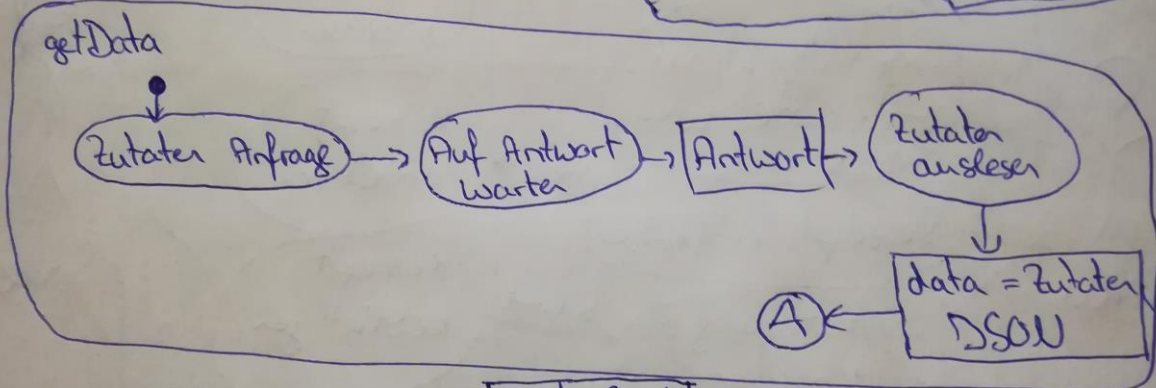 getData
Zutaten Anfrage
Auf Antwort
warten
Antwort
Zutaten
auslesen
data = Zutaten
JSON
A